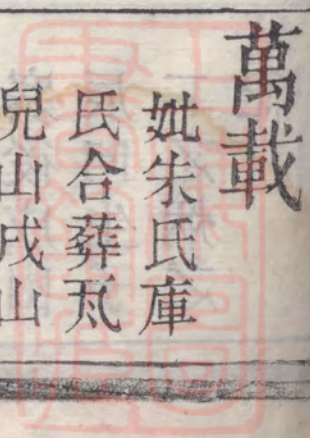 萬載
妣朱氏庫
氏合葬瓦
兒山戌山